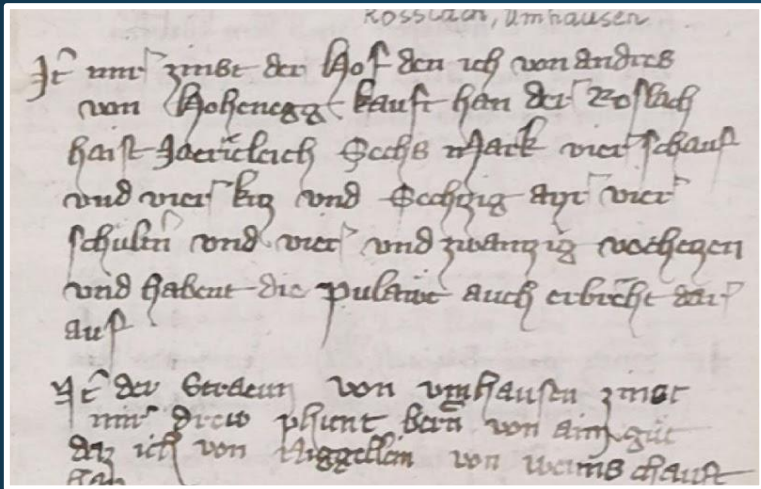 Rosslach, Umhausen
It mir zinst der Hof den ich von andres
von Hohenegg kauft han der Roslach
haist Jaerichleich Sechs Mark vier schauf
vnd vier kiz vnd Sechzig ayr vier
schulin vnd vier vnd zwanzig vochezen
vnd habent die pulawe auch erbrecht dar
auf
It der Straeun von vmhausen zinst
mir drew phunt bern von aim gut
daz ich von Niggellein von weins chauft
han